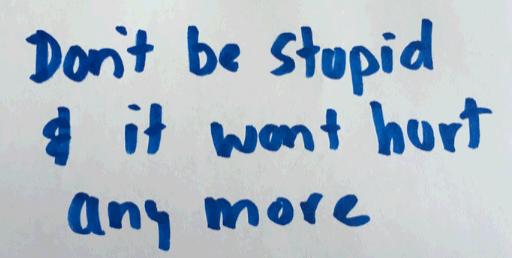 Don't be stupid
& it wont hurt
any more